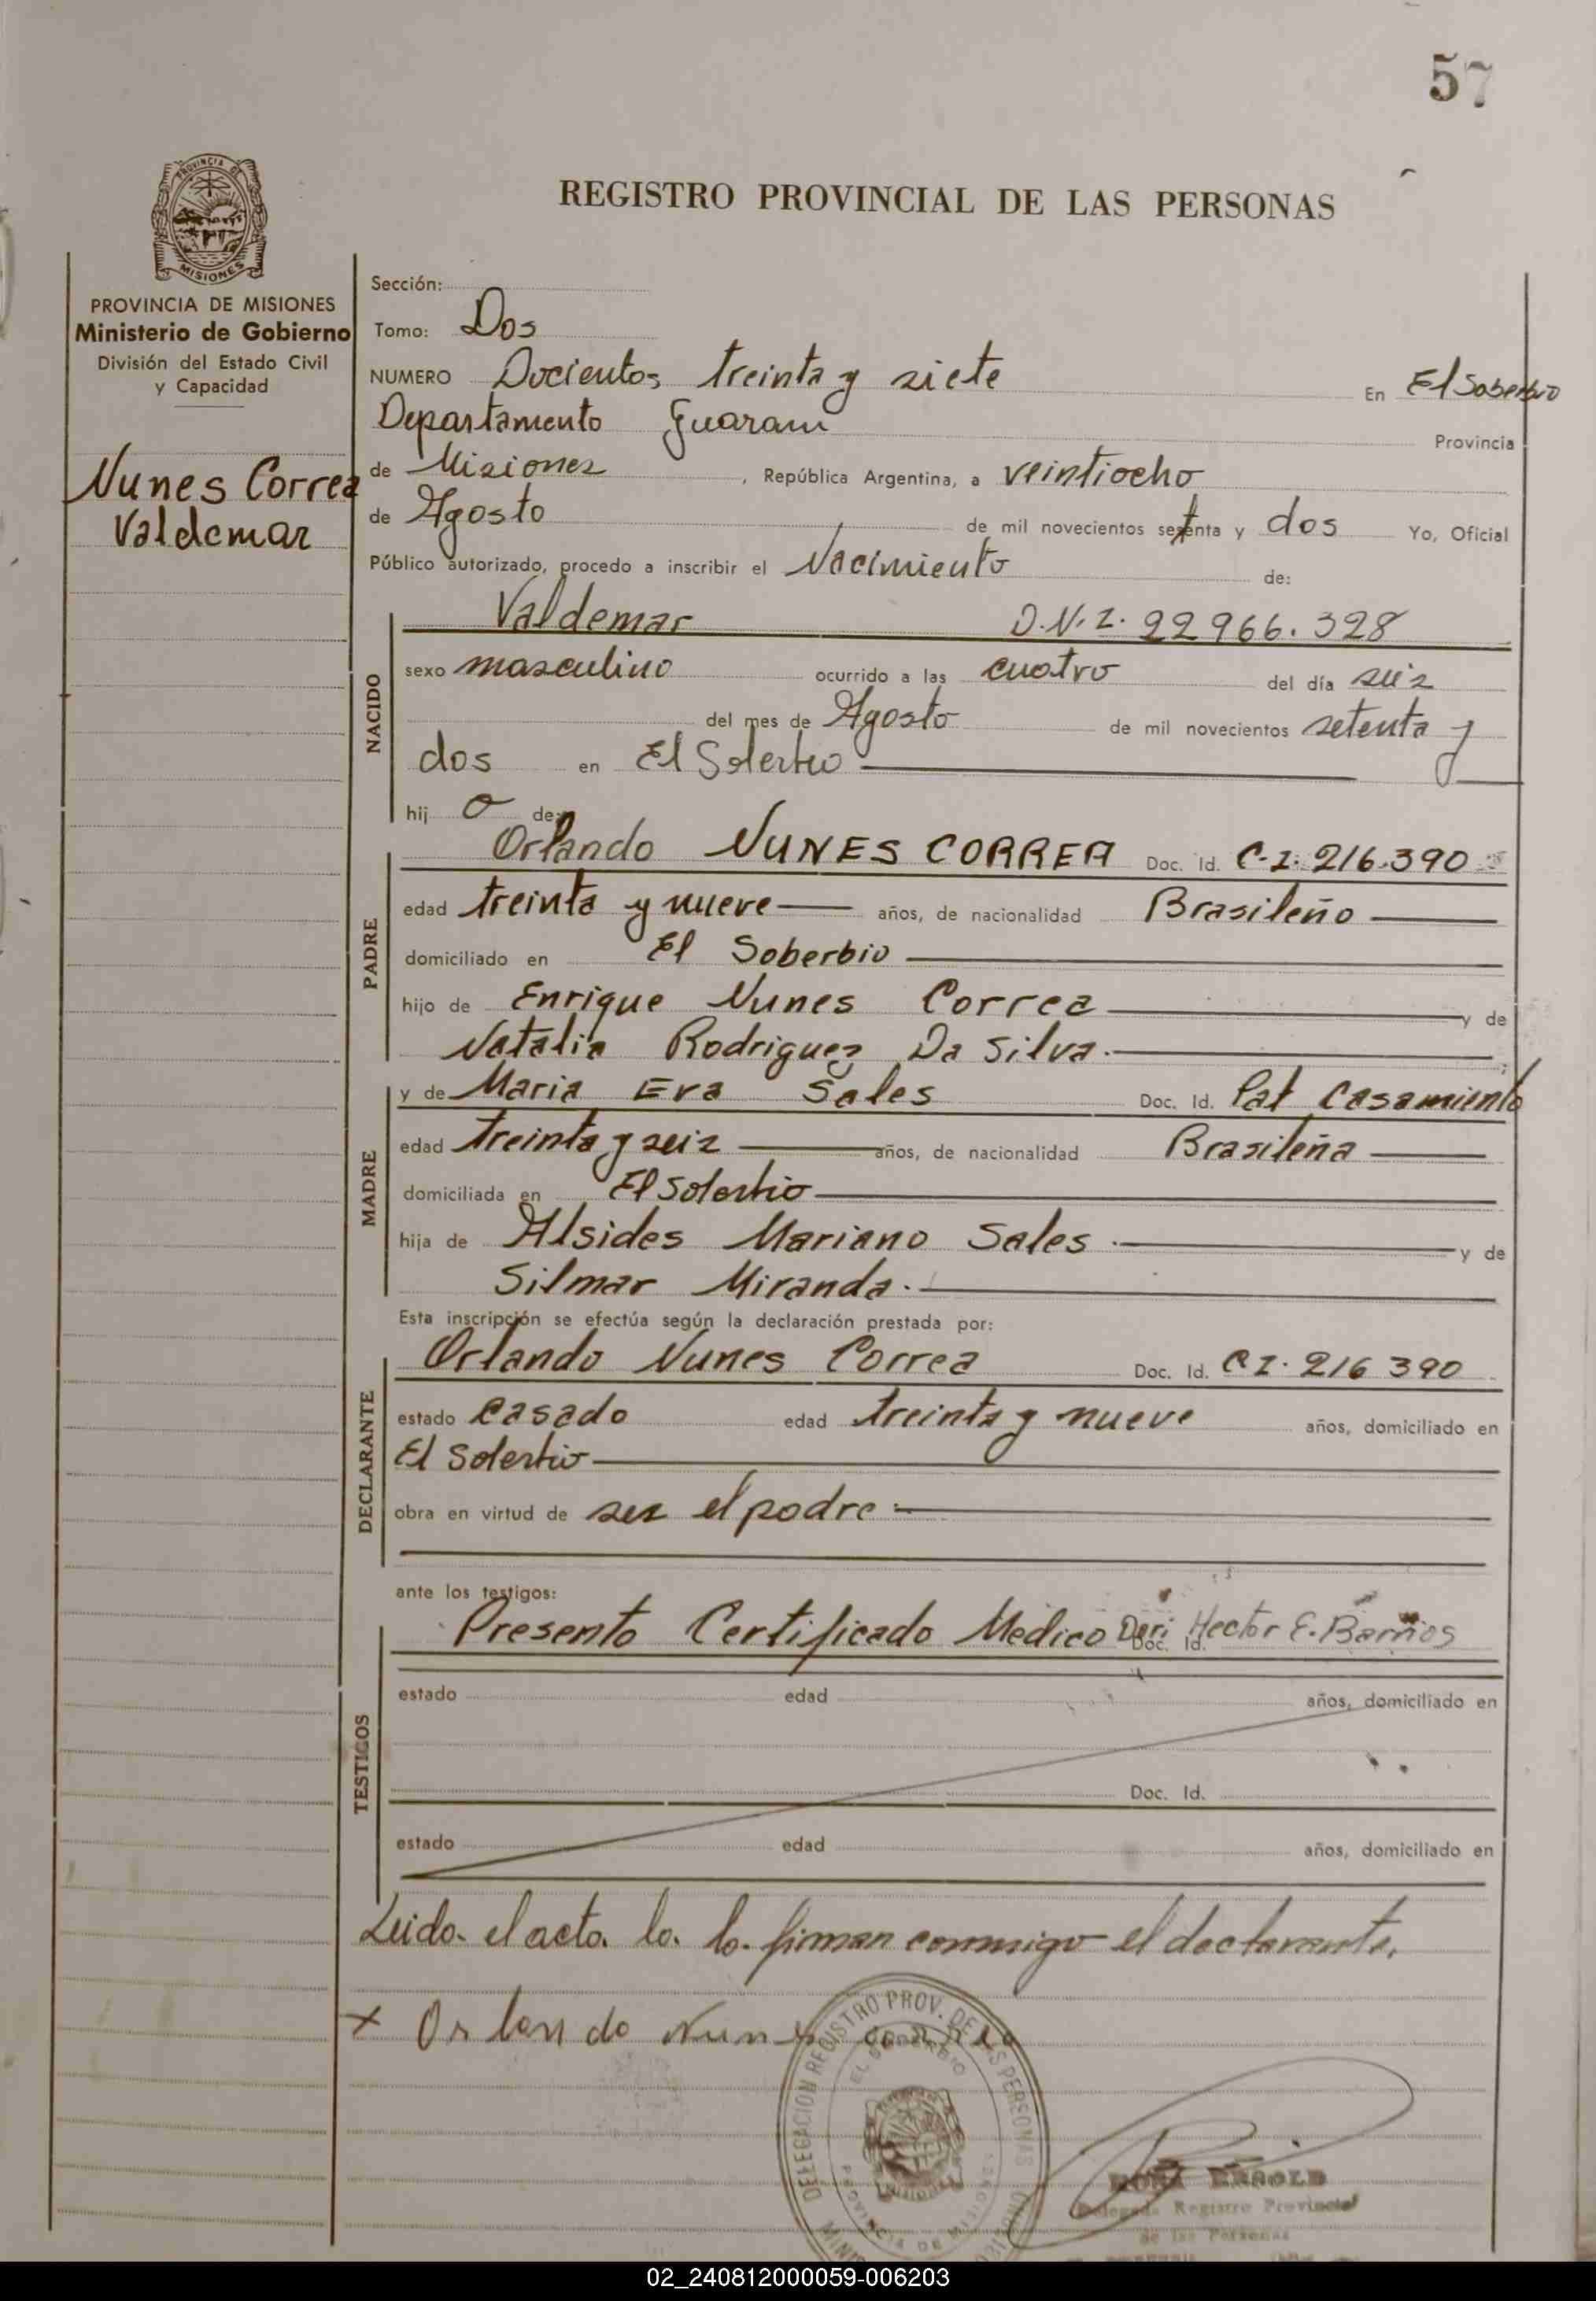 57
PROVINCIA DE
MISIONES
REGISTRO PROVINCIAL DE LAS PERSONAS
PROVINCIA DE MISIONES
Ministerio de Gobierno
División del Estado Civil
y Capacidad
Nunes Correa
Valdemar
Sección:
Tomo: Dos
NUMERO Docientos treinta y siete En El Soberbio
Departamento Guarani Provincia
de Misiones, República Argentina, a veintiocho
de Agosto de mil novecientos setenta y dos Yo, Oficial
Público autorizado, procedo a inscribir el Nacimiento de:
NACIDO
Valdemar D.N.I. 22966.328
sexo masculino ocurrido a las cuatro del día seis
del mes de Agosto de mil novecientos setenta y
dos en El Soberbio
hij o de:
PADRE
Orlando NUNES CORREA Doc. Id. C.I. 216.390
edad treinta y nueve años, de nacionalidad Brasileño
domiciliado en El Soberbio
hijo de Enrique Nunes Correa y de
Natalia Rodriguez Da Silva.
MADRE
y de Maria Eva Sales Doc. Id. Lat Casamiento
edad treinta y seis años, de nacionalidad Brasileña
domiciliada en El Soberbio
hija de Alsides Mariano Sales y de
Silmar Miranda.
Esta inscripción se efectúa según la declaración prestada por:
DECLARANTE
Orlando Nunes Correa Doc. Id. C I. 216 390
estado casado edad treinta y nueve años, domiciliado en
El Soberbio
obra en virtud de ser el padre
ante los testigos:
TESTIGOS
Presento Certificado Médico Doc. Id. Hector E. Barrios
estado edad años, domiciliado en
Doc. Id.
estado edad años, domiciliado en
Leido el acta la firman conmigo el declarante.
x Orlando Nunes Correa
DELEGACION REGISTRO PROV. DE LAS PERSONAS
EL SOBERBIO
PROVINCIA DE MISIONES
Delegada Registro Provincial
de las Personas
02_240812000059-006203